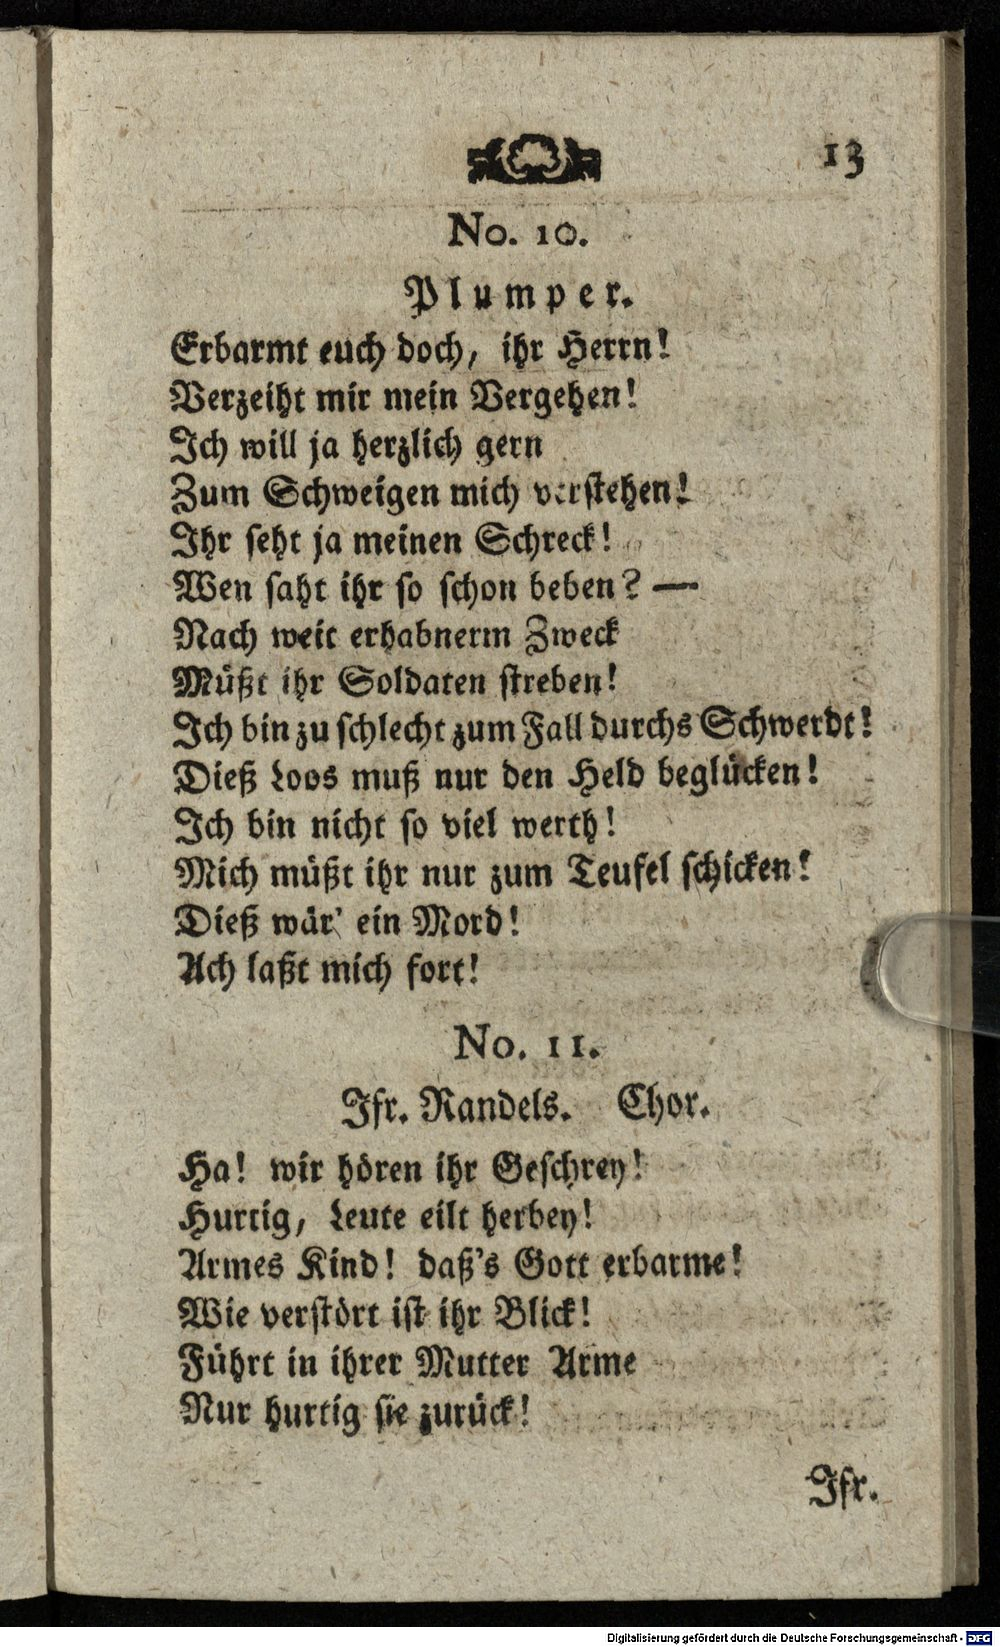 13
No. 10.
Plumper.
Erbarmt euch doch, ihr Herrn!
Verzeiht mir mein Vergehen!
Ich will ja herzlich gern
Zum Schweigen mich verstehen!
Ihr seht ja meinen Schreck!
Wen saht ihr so schon beben? —
Nach weit erhabnerm Zweck
Müßt ihr Soldaten streben!
Ich bin zu schlecht zum Fall durchs Schwerdt!
Dieß Loos muß nur den Held beglücken!
Ich bin nicht so viel werth!
Mich müßt ihr nur zum Teufel schicken!
Dieß wär' ein Mord!
Ach laßt mich fort!
No. 11.
Jfr. Randels. Chor.
Ha! wir hören ihr Geschrey!
Hurtig, Leute eilt herbey!
Armes Kind! daß's Gott erbarme!
Wie verstört ist ihr Blick!
Führt in ihrer Mutter Arme
Nur hurtig sie zurück!
Jfr.
Digitalisierung gefördert durch die Deutsche Forschungsgemeinschaft - DFG